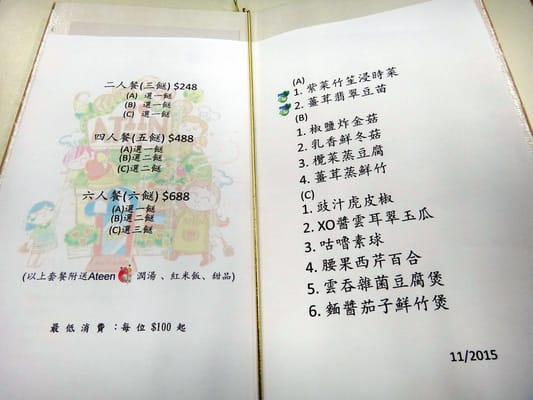 二人餐(三餸) $248
(A) 選一餸
(B) 選一餸
(C) 選一餸
四人餐(五餸) $488
(A)選一餸
(B)選二餸
(C)選二餸
六人餐(六餸) $688
(A)選一餸
(B)選二餸
(C)選三餸
(以上套餐附送Ateen 潤湯、紅米飯、甜品)
最低消費：每位 $100 起
(A)
1. 紫菜竹笙浸時菜
2. 薑茸翡翠豆苗
(B)
1. 椒鹽炸金菇
2. 乳香鮮冬菇
3. 欖菜蒸豆腐
4. 薑茸蒸鮮竹
(C)
1. 豉汁虎皮椒
2. XO醬雲耳翠玉瓜
3. 咕嚕素球
4. 腰果西芹百合
5. 雲吞雜菌豆腐煲
6. 麵醬茄子鮮竹煲
11/2015